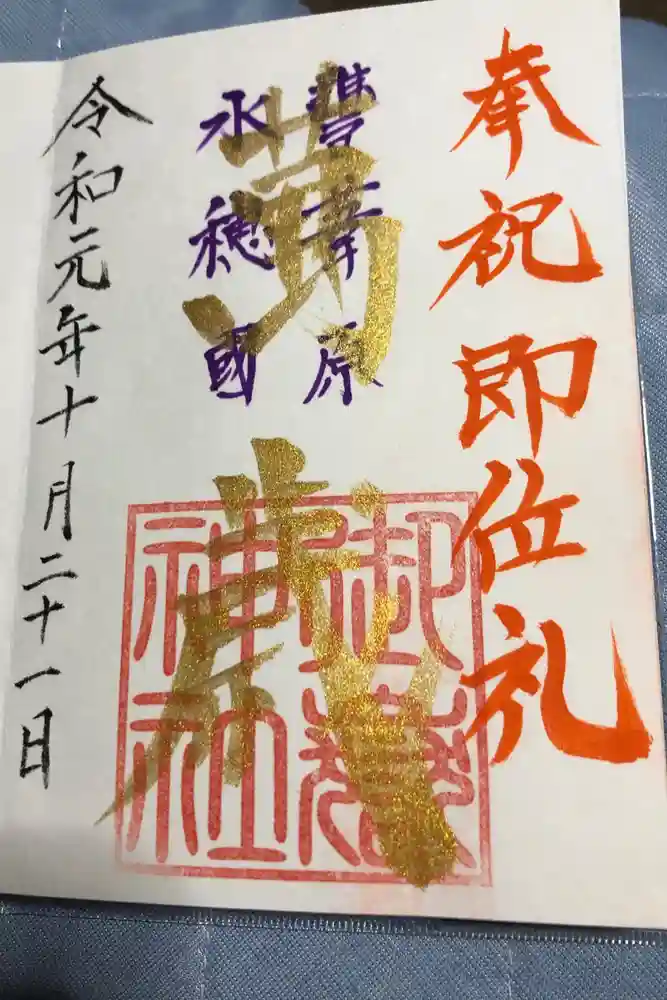 奉祝即位礼
豊葦原
永穂國
萬歳
神社
令和元年十月二十一日